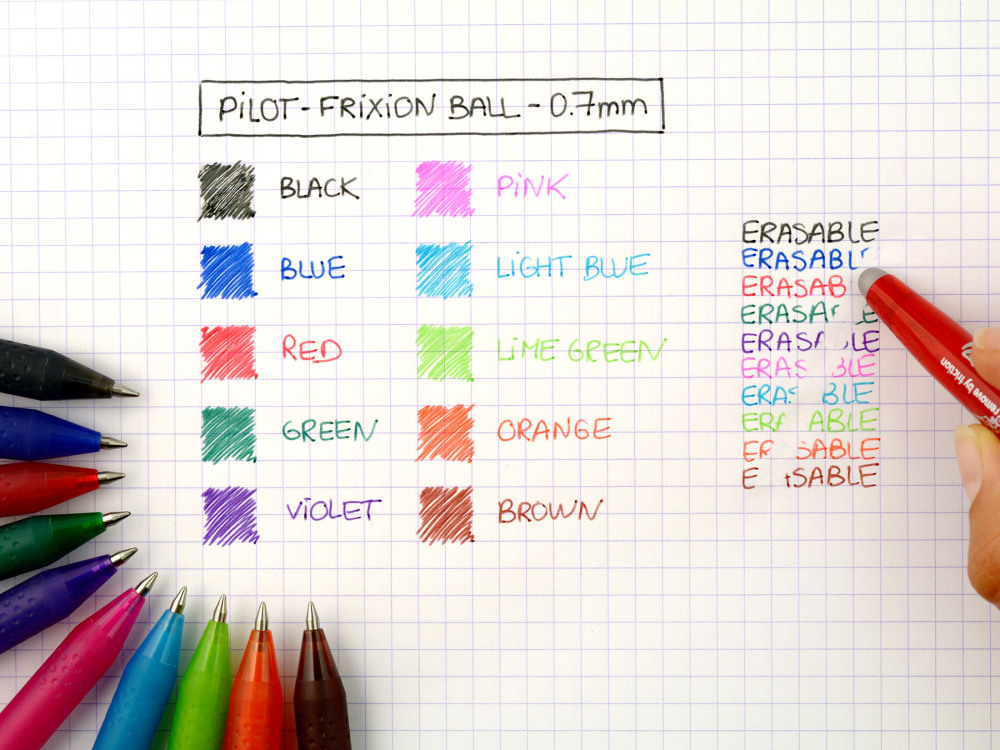 PILOT - FRIXION BALL - 0.7mm
BLACK
BLUE
RED
GREEN
VIOLET
PINK
LIGHT BLUE
LIME GREEN
ORANGE
BROWN
ERASABLE
ERASABL
ERASAB
ERASA E
ERAS LE
ERAS BLE
ERA BLE
ER ABLE
ER SABLE
E SABLE
remove by friction